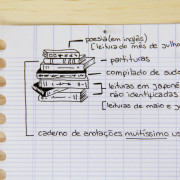 poesia (em inglês)
[leitura do mês de julho
partituras
compilado de sudo
leituras em japonê
não identificadas
[leitura de maio e j
caderno de anotações muitíssimo us